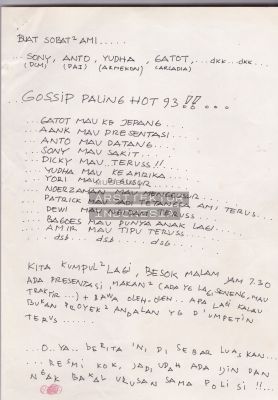 BUAT SOBAT² AMI.....
SONY, ANTO, YUDHA, GATOT,...dkk..dkk...
(DCM) (PAI) (ARMEKON) (ARCADIA)
GOSSIP PALING HOT 93 !!....
GATOT MAU KE JEPANG....
AANK MAU PRESENTASI.
ANTO MAU DATANG...
SONY MAU SAKIT...
DICKY MAU TERUSS!!..
YUDHA MAU KE AMRIKA..
YORI MAU
NOERZAMAN MAU
PATRICK MAU JADI TETANGGA AMI TERUS...
DEWI MAU TERUSS..
BAGOES MAU PUNYA ANAK LAGI...
AMIR MAU TIPU TERUSS
dsb... dsb.... dsb....
KITA KUMPUL² LAGI, BESOK MALAM JAM 7.30
ADA PRESENTASI, MAKAN² (ADA YG LAGI SENENG, MAU
TRAKTIR...) + BAWA OLEH-OLEH... APA LAGI KALAU
BUKAN PROYEK² ANDALAN YG D'UMPETIN
TERUS......
...O.YA.. BERITA 'NI, DI SEBAR LUASKAN...
...RESMI KOK, JADI UDAH ADA IJIN DAN
NGAK BAKAL URUSAN SAMA POLISI !!...